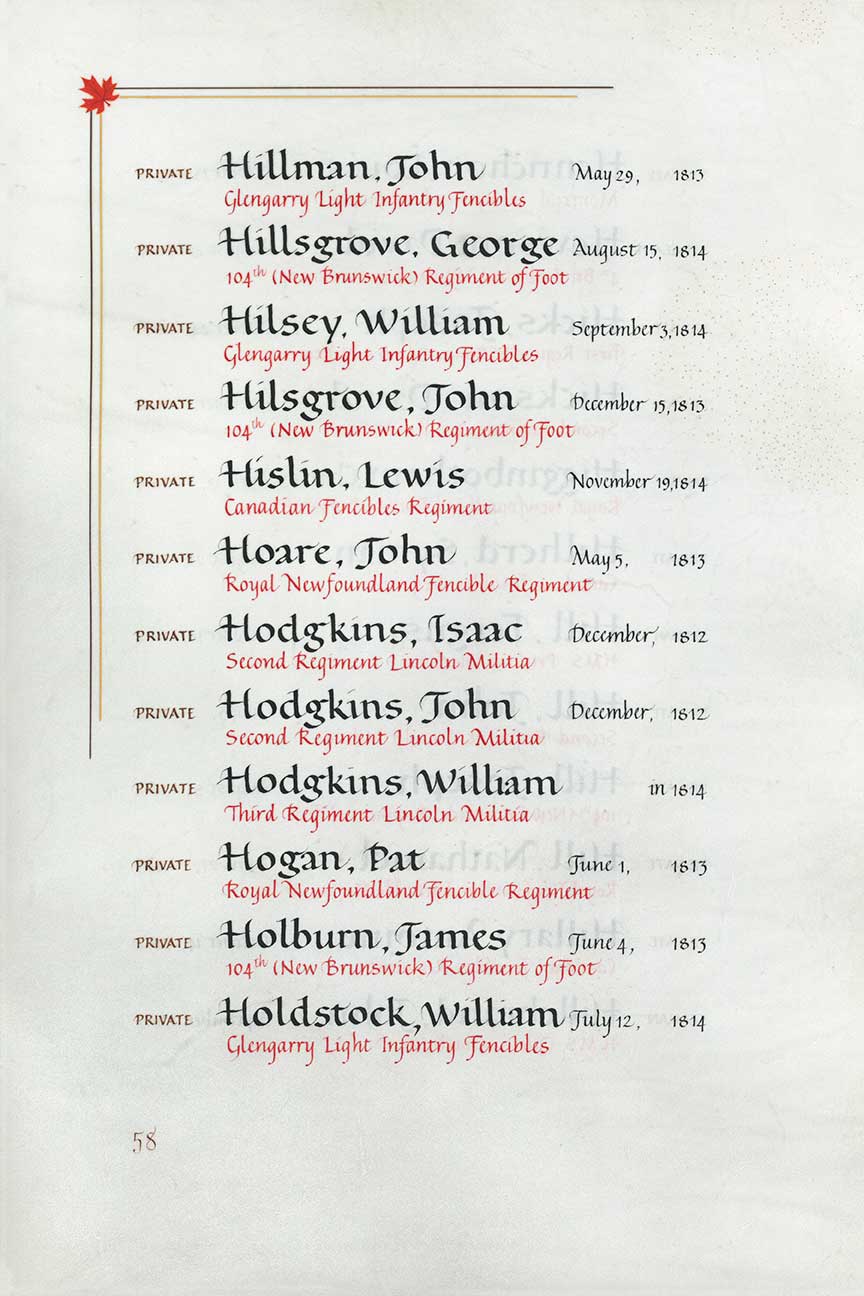 PRIVATE Hillman, John May 29, 1813
Glengarry Light Infantry Fencibles
PRIVATE Hillsgrove, George August 15, 1814
104th (New Brunswick) Regiment of Foot
PRIVATE Hilsey, William September 3, 1814
Glengarry Light Infantry Fencibles
PRIVATE Hilsgrove, John December 15, 1813
104th (New Brunswick) Regiment of Foot
PRIVATE Hislin, Lewis November 19, 1814
Canadian Fencibles Regiment
PRIVATE Hoare, John May 5, 1813
Royal Newfoundland Fencible Regiment
PRIVATE Hodgkins, Isaac December, 1812
Second Regiment Lincoln Militia
PRIVATE Hodgkins, John December, 1812
Second Regiment Lincoln Militia
PRIVATE Hodgkins, William in 1814
Third Regiment Lincoln Militia
PRIVATE Hogan, Pat June 1, 1813
Royal Newfoundland Fencible Regiment
PRIVATE Holburn, James June 4, 1813
104th (New Brunswick) Regiment of Foot
PRIVATE Holdstock, William July 12, 1814
Glengarry Light Infantry Fencibles
58